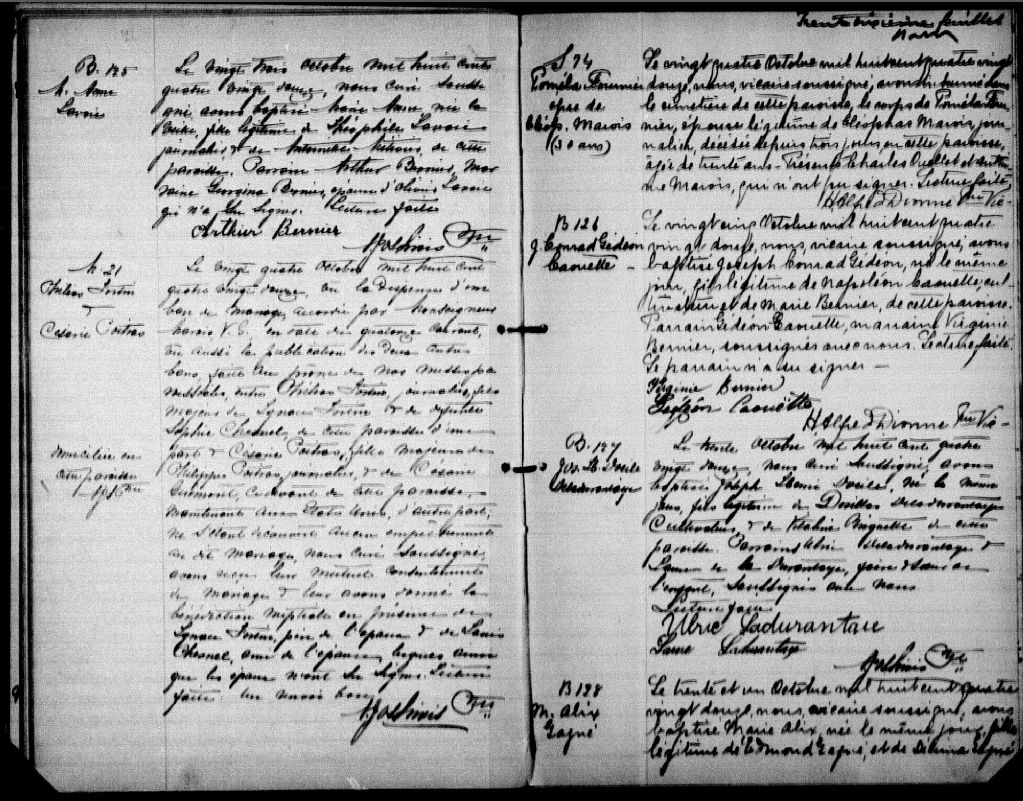 B. 125
M. Anne
Lavoie
Le vingt trois Octobre mil huit cent
quatre vingt douze, nous curé soussi
gné, avons baptisé Marie Anne née la
veille, fille légitime de Théophile Lavoie
journalier & de Antoinette de cette
paroisse. Parrain Arthur Bernier, mar
raine Georgina Bernier, épouse d'Olivier Lavoie
qui n'a su signer. Lecture faite
Arthur Bernier
Ptre
M. 21
Fortin
&
Césarie Poitras
Le vingt quatre Octobre mil huit cent
quatre vingt douze, vu la dispense d'un
ban de mariage, accordée par Monseigneur
Marois V.G. en date du quatorze courant,
vu aussi la publication des deux autres
bans, faite au prône de nos messes pa
roissiales, entre Fortin, journalier, fils
majeur de Ignace Fortin & de défunte
Sophie Chesnel, de cette paroisse d'une
part & Césarie Poitras, fille majeure de
Philippe Poitras, journalier, & de Césarie
ci-devant de cette paroisse,
maintenant aux Etats Unis, d'autre part,
ne s'étant découvert aucun empêchement
au dit mariage, nous curé soussigné,
avons reçu leur mutuel consentement
de mariage & leur avons donné la
bénédiction nuptiale en présence de
Ignace Fortin, père de l'époux & de Louis
Chesnel, ami de l'épouse, lesquels ainsi
que les époux n'ont su signer. Lecture
faite. un mot bon
Ptre
domiciliée en
cette paroisse
Ptre
Trente sixième feuillet
S 74
Poméla Fournier
épse de
Cléop. Marois
(30 ans)
Le vingt quatre Octobre mil huit cent quatre vingt
douze, nous, vicaire soussigné, avons inhumé dans
le cimetière de cette paroisse, le corps de Poméla Four
nier, épouse légitime de Cléophas Marois, jour
nalier, décédée depuis trois jours en cette paroisse,
âgée de trente ans. Présents Charles Ouellet et
Marois, qui n'ont pu signer. Lecture faite,
H Alfred Dionne Ptre Vic-
B 126
J. Conrad Gédéon
Caouette -
Le vingt cinq Octobre mil huit cent quatre
vingt douze, nous, vicaire soussigné, avons
baptisé Joseph Conrad Gédéon, né le même
jour, fils légitime de Napoléon Caouette, cul-
tivateur et de Marie Bernier, de cette paroisse.
Parrain Gédéon Caouette, marraine Virginie
Bernier, soussignés avec nous. Lecture faite.
Le parrain n'a su signer -
Virginie Bernier
Gédéon Caouette
H Alfred Dionne Ptre Vic-
B. 127
Jos. H. Douile
Desdurantaye
Le trente Octobre mil huit cent quatre
vingt douze, nous curé soussigné, avons
baptisé Joseph Henri né le même
jour, fils légitime de Desdurantaye
Cultivateur, & de Vitaline de cette
paroisse. Parrain Ulric Desdurantaye &
Laure de la Durantaye, frère & sœur de
l'enfant, soussignés avec nous
Lecture faite
Ulric Ladurantaie
Laure Ladurantaye
Ptre
B 128
M. Alix
Gagné
Le trente et un Octobre mil huit cent quatre
vingt douze, nous, vicaire soussigné, avons
baptisé Marie Alix, née le même jour, fille
légitime de Edmond Gagné, et de Gagné